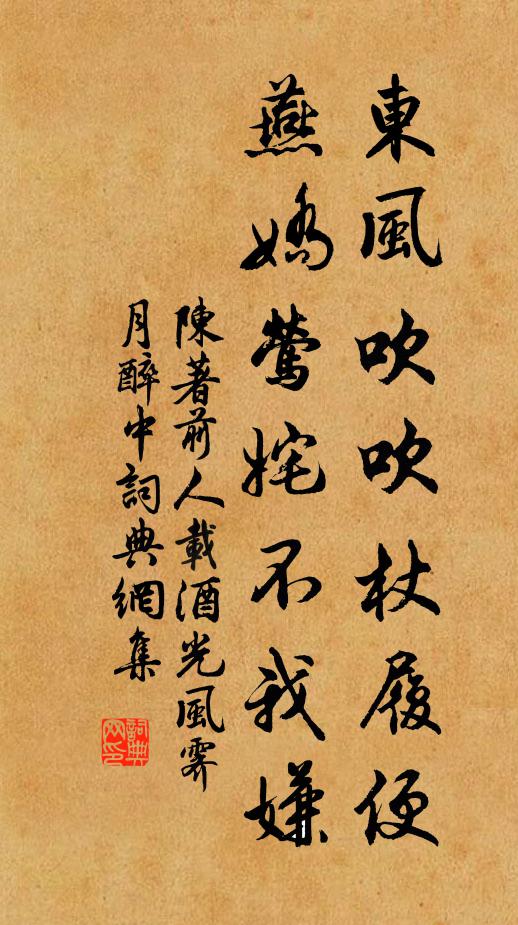 東風吹吹杖履便
燕嬌鶯姹不我嫌
陳著前人載酒光風霽
月醉中詞典網集
詞典
网印